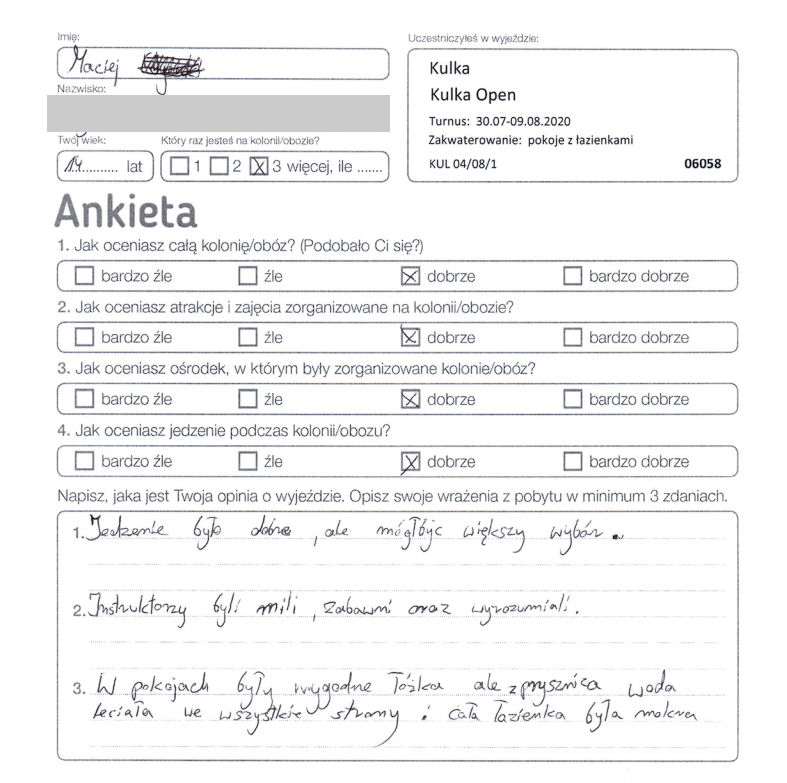 Imię:
Maciej
Nazwisko:
Twój wiek:
Który raz jesteś na kolonii/obozie?
14 .......... lat
1 2 3 więcej, ile .......
Uczestniczyłeś w wyjeździe:
Kulka
Kulka Open
Turnus: 30.07-09.08.2020
Zakwaterowanie: pokoje z łazienkami
KUL 04/08/1 06058
Ankieta
1. Jak oceniasz całą kolonię/obóz? (Podobało Ci się?)
bardzo źle źle dobrze bardzo dobrze
2. Jak oceniasz atrakcje i zajęcia zorganizowane na kolonii/obozie?
bardzo źle źle dobrze bardzo dobrze
3. Jak oceniasz ośrodek, w którym były zorganizowane kolonie/obóz?
bardzo źle źle dobrze bardzo dobrze
4. Jak oceniasz jedzenie podczas kolonii/obozu?
bardzo źle źle dobrze bardzo dobrze
Napisz, jaka jest Twoja opinia o wyjeździe. Opisz swoje wrażenia z pobytu w minimum 3 zdaniach.
1. Jedzenie było dobre, ale mógłbyć większy wybór.
2. Instruktorzy byli mili, zabawni oraz wyrozumiali.
3. W pokojach były wygodne łóżka ale z prysznica woda
leciała we wszystkie strony i cała łazienka była mokra